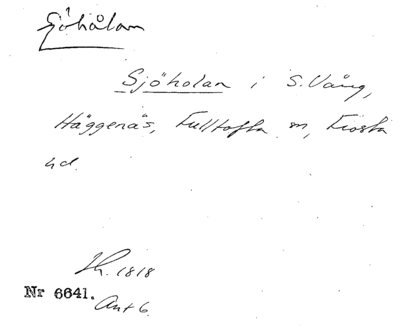 Sjöhålan
Sjöholan i S. Vång,
Häggenäs, Fulltofta sn, Frosta
hd.
Lh. 1818
Nr 6641.
Ant 6.